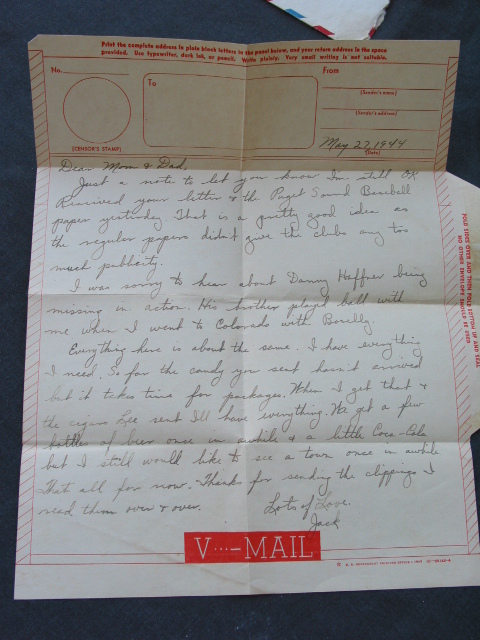 Print the complete address in plain block letters in the panel below, and your return address in the space
provided. Use typewriter, dark ink, or pencil. Write plainly. Very small writing is not suitable.
No.
(CENSOR'S STAMP)
To
From
(Sender's name)
(Sender's address)
May 27 1944
(Date)
Dear Mom & Dad,
Just a note to let you know I'm still OK
Received your letter & the Puget Sound Baseball
paper yesterday. That is a pretty good idea as
the regular papers didn't give the clubs any too
much publicity.
I was sorry to hear about Danny Haffner being
missing in action. His brother played ball with
me when I went to Colorado with
Everything here is about the same. I have everything
I need. So far the candy you sent hasn't arrived
but it takes time for packages. When I get that &
the cigars Lee sent I'll have everything. We get a few
bottles of beer once in awhile & a little Coca-Cola
but I still would like to see a town once in awhile
That all for now. Thanks for sending the clippings I
read them over & over.
Lots of Love.
Jack
V···–MAIL
FOLD SIDES OVER AND THEN FOLD BOTTOM UP AND SEAL
NO OTHER ENVELOPE SHOULD BE USED
U. S. GOVERNMENT PRINTING OFFICE